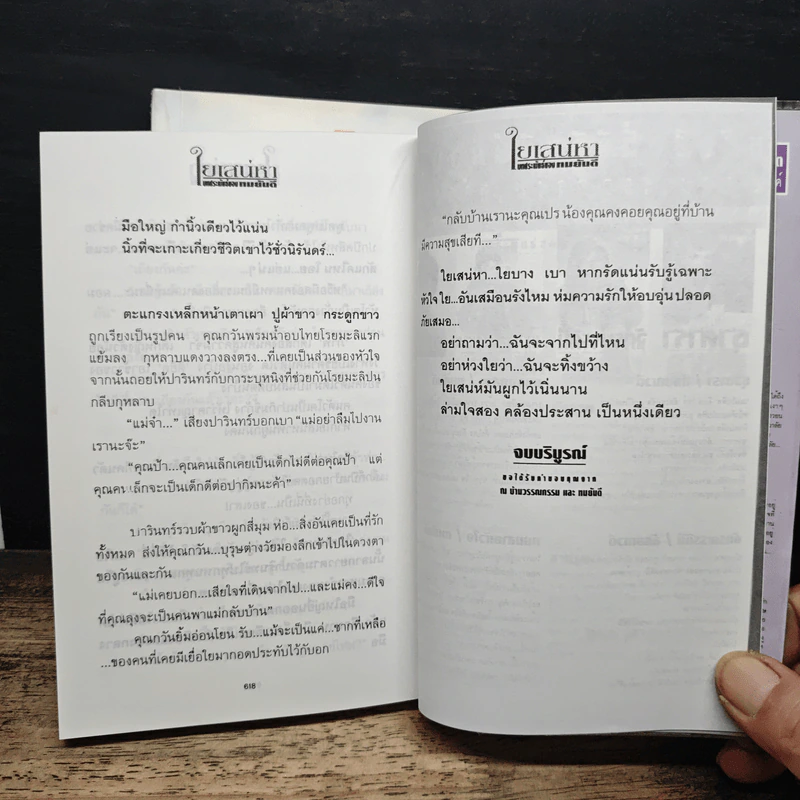 ใยเสน่หา
บทประพันธ์ของ ทมยันตี
มือใหญ่ กำนิ้วเดียวไว้แน่น
นิ้วที่จะเกาะเกี่ยวชีวิตเขาไว้ชั่วนิรันดร์...
ตะแกรงเหล็กหน้าเตาเผา ปูผ้าขาว กระดูกขาว
ถูกเรียงเป็นรูปคน คุณกวันพรมน้ำอบไทยโรยมะลิแรก
แย้มลง กุหลาบแดงวางลงตรง...ที่เคยเป็นส่วนของหัวใจ
จากนั้นถอยให้ปารินทร์กับการะบุหนิงที่ช่วยกันโรยมะลิปน
กลีบกุหลาบ
"แม่จ๋า..." เสียงปารินทร์บอกเบา "แม่อย่าลืมไปงาน
เรานะจ๊ะ"
"คุณป้า...คุณคนเล็กเคยเป็นเด็กไม่ดีต่อคุณป้า แต่
คุณคนเล็กจะเป็นเด็กดีต่อปากิมนะค้า"
ปารินทร์รวบผ้าขาวผูกสี่มุม ห่อ...สิ่งอันเคยเป็นที่รัก
ทั้งหมด ส่งให้คุณกวัน...บุรุษต่างวัยมองลึกเข้าไปในดวงตา
ของกันและกัน
"แม่เคยบอก...เสียใจที่เดินจากไป...และแม่คง...ดีใจ
ที่คุณลุงจะเป็นคนพาแม่กลับบ้าน"
คุณกวันยิ้มอ่อนโยน รับ...แม้จะเป็นแค่...ซากที่เหลือ
...ของคนที่เคยมีเยื่อใยมากอดประทับไว้กับอก
618
ใยเสน่หา
บทประพันธ์ของ ทมยันตี
"กลับบ้านเรานะคุณเปร น้องคุณคงคอยคุณอยู่ที่บ้าน
มีความสุขเสียที..."
ใยเสน่หา...ใยบาง เบา หากรัดแน่นรับรู้เฉพาะ
หัวใจ ใย...อันเสมือนรังไหม ห่มความรักให้อบอุ่น ปลอด
ภัยเสมอ...
อย่าถามว่า...ฉันจะจากไปที่ไหน
อย่าห่วงใยว่า...ฉันจะทิ้งขว้าง
ใยเสน่ห์มันผูกไว้เนิ่นนาน
ล่ามใจสอง คล้องประสาน เป็นหนึ่งเดียว
จบบริบูรณ์
ขอได้รับคำขอบคุณจาก
ณ บ้านวรรณกรรม และ ทมยันตี